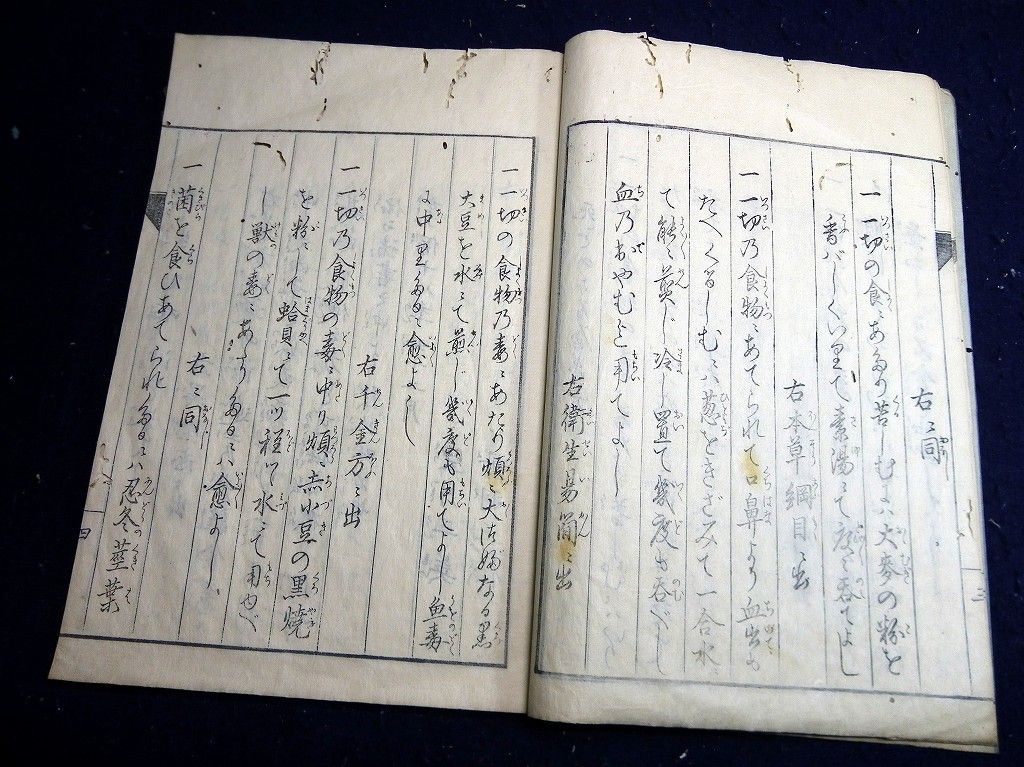 右ニ同
一 一切の食ニあたり苦しむには大麥の粉を
香バしくいりて素湯にて度々呑てよし
右本草綱目ニ出
一 一切乃食物ニあてられて口鼻より血出も
たへくるしむニハ葱をきざみて一合水
て能々煎じ冷し置て幾度も呑べし
血乃出やむまで用てよし
右衛生易簡ニ出
一 一切の食物乃毒ニあたり煩ニ大法師なる黒
大豆を水にて煎じ幾度も用てよし 魚毒
に中りたるも愈よし
右千金方ニ出
一 一切乃食物の毒ニ中り煩ニ赤小豆の黒焼
を粉にして蛤貝にて一ツ程ツヽ水にて用ゆべ
し 獣の毒ニあたりたるニハ愈よし
右ニ同
一 菌を食ひあてられたるニハ忍冬の莖葉
三
四